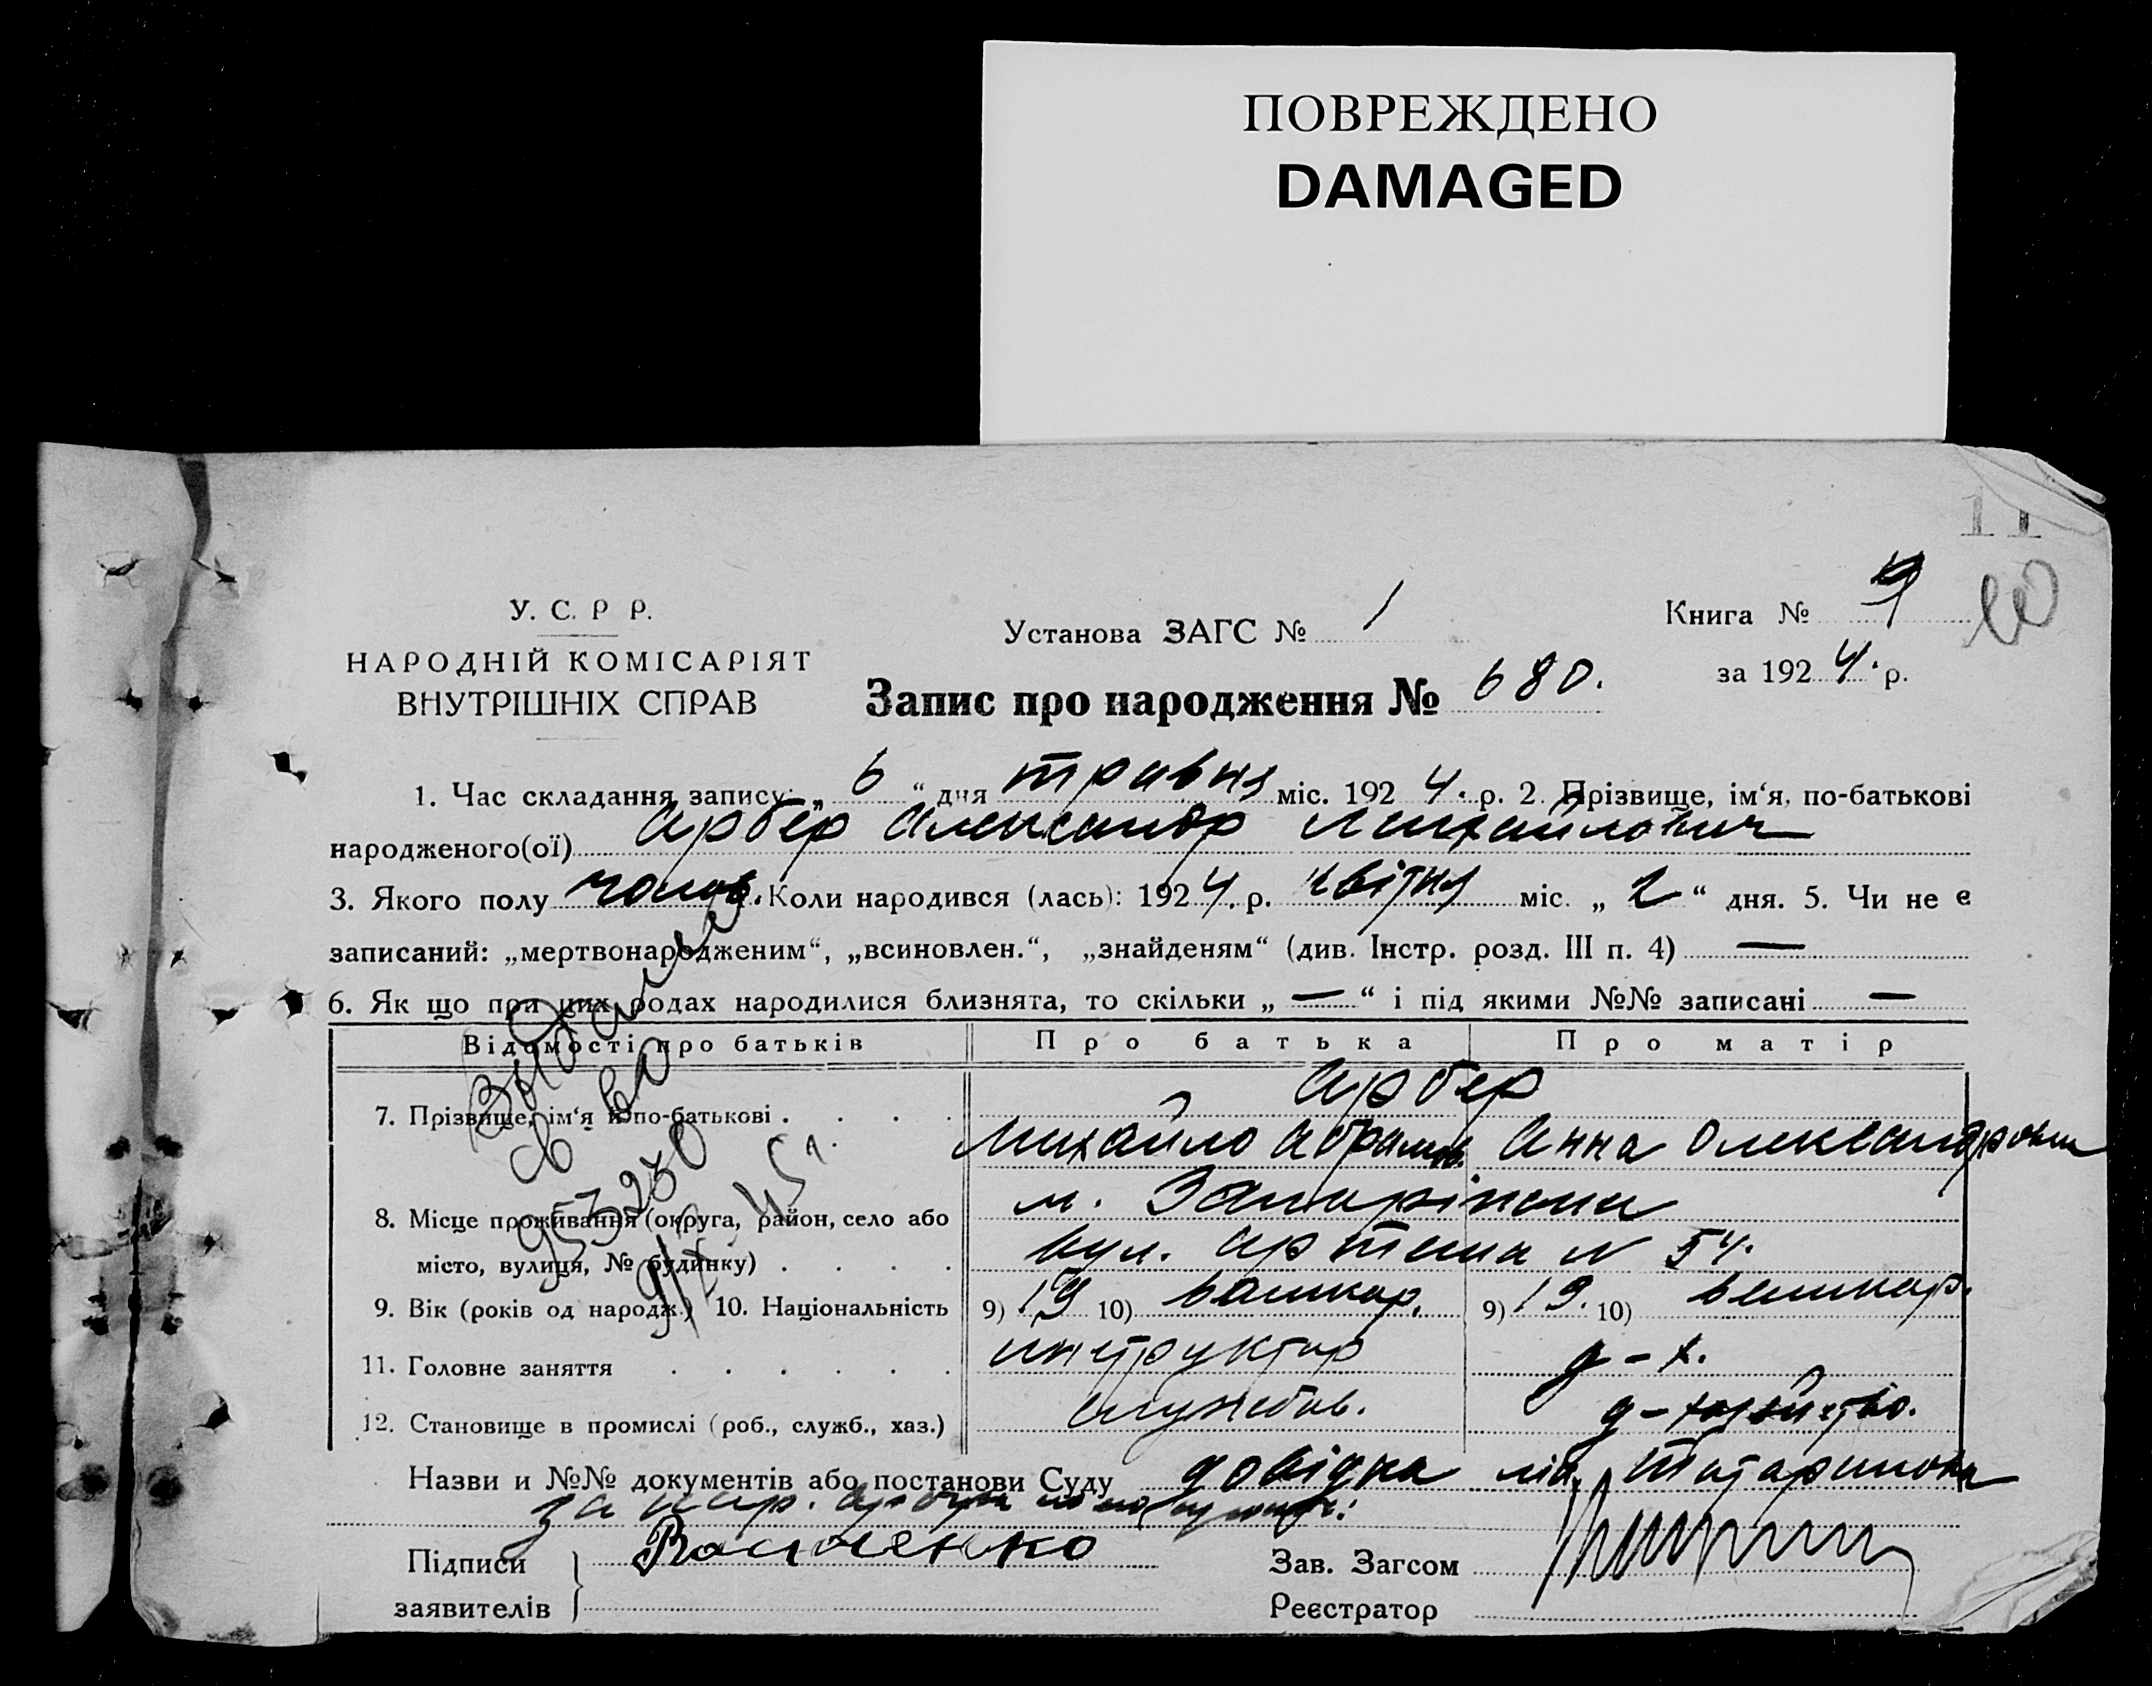 ПОВРЕЖДЕНО
DAMAGED
11
У. С. Р Р.
НАРОДНІЙ КОМІСАРІЯТ
ВНУТРІШНІХ СПРАВ
Установа ЗАГС № 1
Книга № 9
за 1924. р.
Запис про народження № 680.
1. Час складання запису: „ 6 “ дня травня міс. 1924. р. 2. Прізвище, ім‘я, по-батькові
народженого(ої) Арбер Александр Михайлович
3. Якого полу чолов. Коли народився (лась): 1924. р. квітня міс. „ 2 “ дня. 5. Чи не є
записаний: „мертвонародженим“, „всиновлен.“, „знайденям“ (див. Інстр. розд. III п. 4) —
6. Як що при цих родах народилися близнята, то скільки „ — “ і під якими №№ записані —
Відомості про батьків Про батька Про матір
Арбер
7. Прізвище, ім‘я й по-батькові . . . .
Михайло Абрамов. Анна Олександровна
8. Місце проживання (округа, район, село або м.
місто, вулиця, № будинку) . . . . вул. Артема N 54.
9. Вік (років од народж.) 10. Національність 9) 19 10) 9) 19. 10)
11. Головне заняття . . . . . . инструктор д – х.
12. Становище в промислі (роб., служб., хаз.) службов. д – хазяйство.
Видано
св. во
953230
45 г.
Назви и №№ документів або постанови Суду довідка
за
Підписи
заявителів
Зав. Загсом
Реєстратор